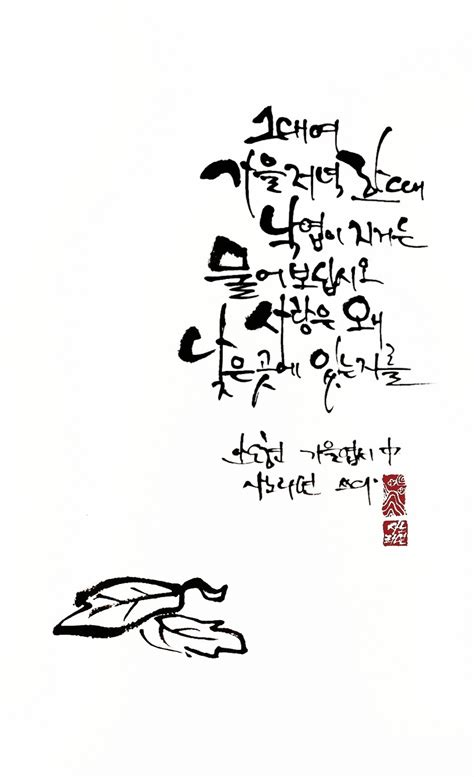 그대여
가을저녁 한때
낙엽이 지거든
물어보십시오
사랑은 왜
낮은 곳에 있는지를
안도현 가을엽서 中
사노라면 쓰다.